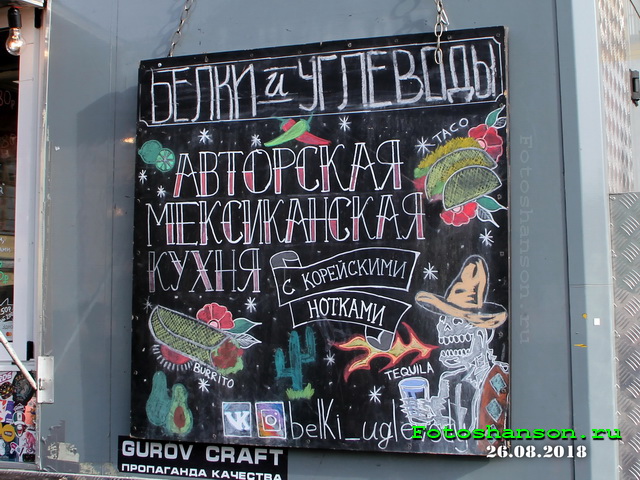 БЕЛКИ и УГЛЕВОДЫ
TACO
АВТОРСКАЯ
МЕКСИКАНСКАЯ
КУХНЯ
С КОРЕЙСКИМИ
НОТКАМИ
BURRITO
TEQUILA
GUROV CRAFT
ПРОПАГАНДА КАЧЕСТВА
Fotoshanson.ru
Fotoshanson.ru
26.08.2018